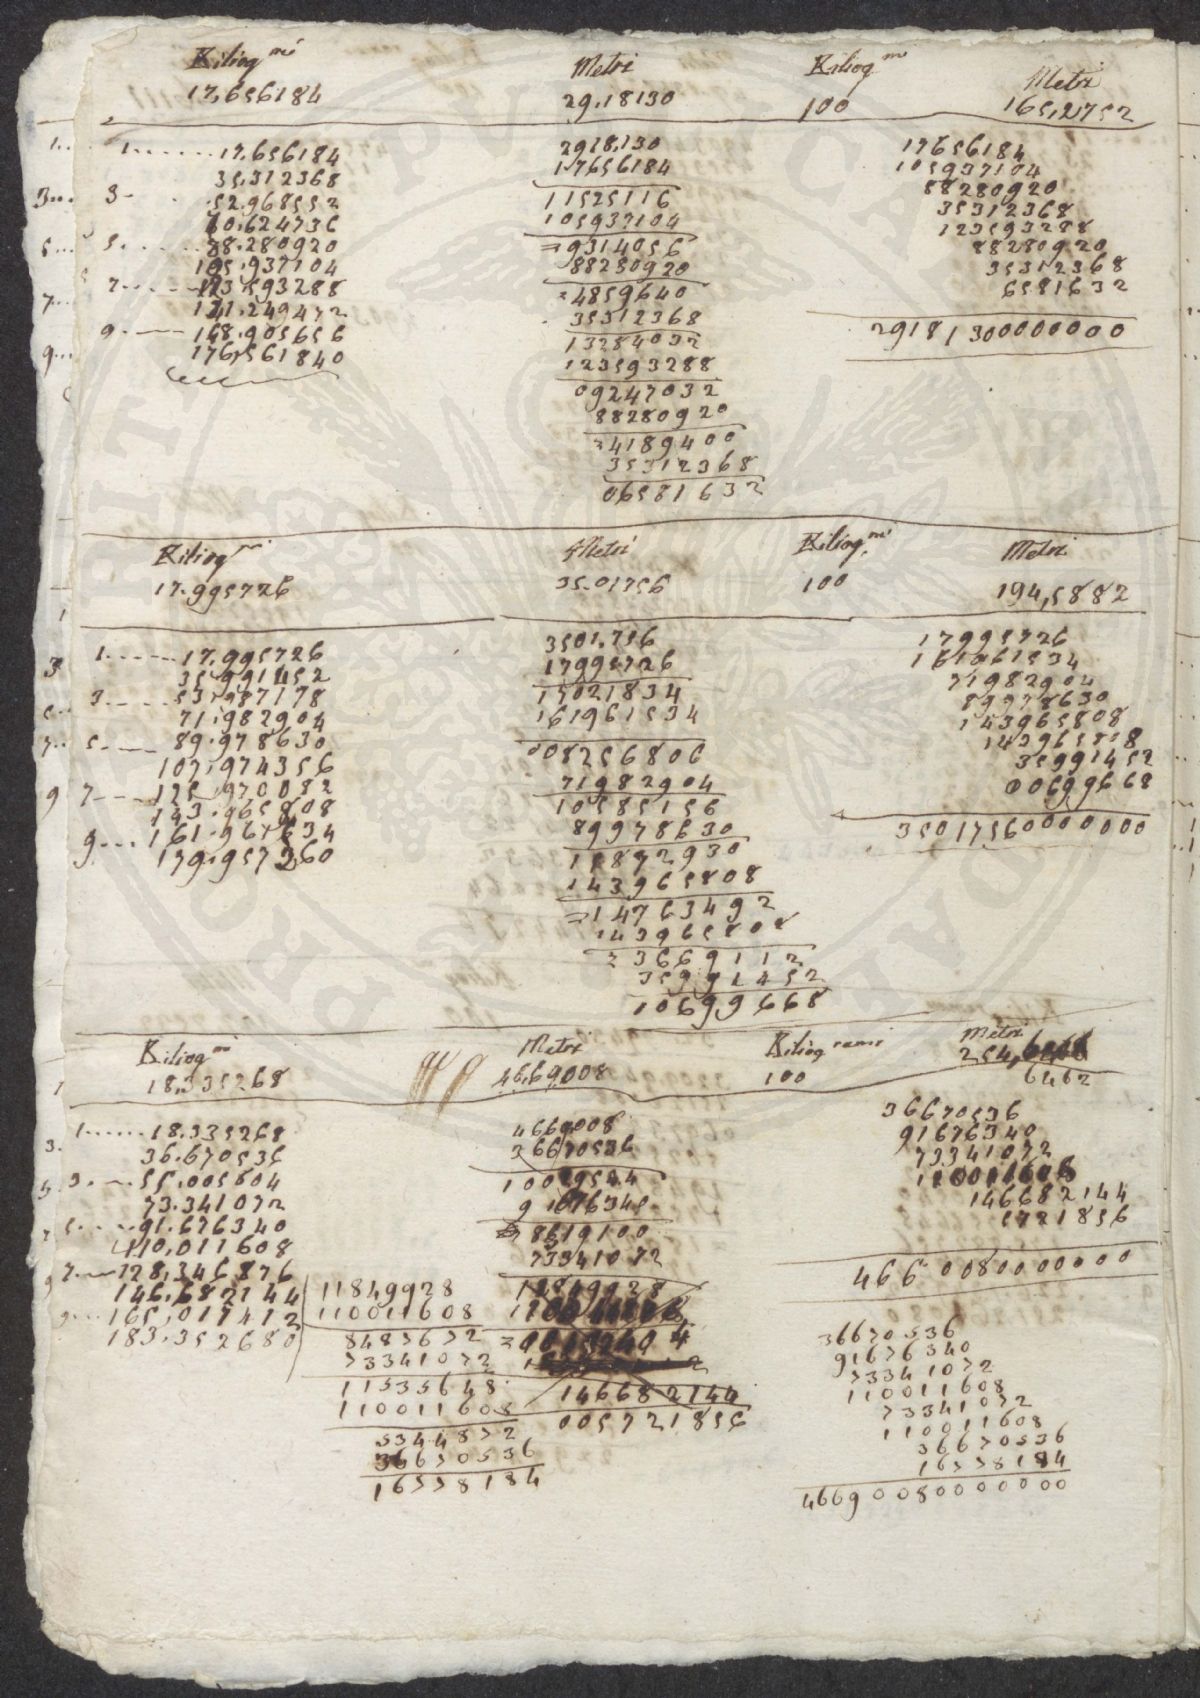 Kiliog mi Metri Kiliog m Metri
17,656184 29,18130 100 165,2752
1... 1.......17,656184
35,312368
3... 3- . 52,968552
70,624736
5... 5.......88,280920
105,937104
7... 7.......123,593288
141,249472
9... 9.---158,905656
176,561840
2918,130
17656184
11525116
105937104
=9314056
88280920
=4859640
35312368
13284032
123593288
09247032
88280920
=4189400
35312368
06581632
17656184
105937104
88280920
35312368
123593288
88280920
35312368
6581632
2918130000000
Kiliog mi Metri Kiliog. mi Metri
17.995726 35.01756 100 194,5882
1.....17,995726
35,991452
3.....53,987178
71,982904
5.---89,978630
107,974356
7----125,970082
143,965808
9...161,961534
179,957260
3501,756
17995726
15021834
161961534
008256806
71982904
10585156
89978630
15872930
143965808
=14763492
143965808
=3669112
35991452
10699668
17995726
161961534
71982904
89978630
143965808
143965808
35991452
00699668
35017560000000
Kiliog mi Metri Kiliog rami Metri
18,335268 46,69008 100 254,
6462
1......18,335268
36,670536
3.---55,005604
73,341072
5....91,676340
110,011608
7.---128,346876
146,682144
9....165,017412
183,352680
4669008
36670536
10029544
91676340
8619100
73341072
12849928
14668 2144
005721856
11849928
110011608
8483672
73341072
11535648
110011608
5344872
36670536
16778184
36670536
91676340
73341072
110011608
146682144
5721856
466 0080000000
36670536
91676340
73341072
110011608
73341072
110011608
36670536
16778184
4669008000000